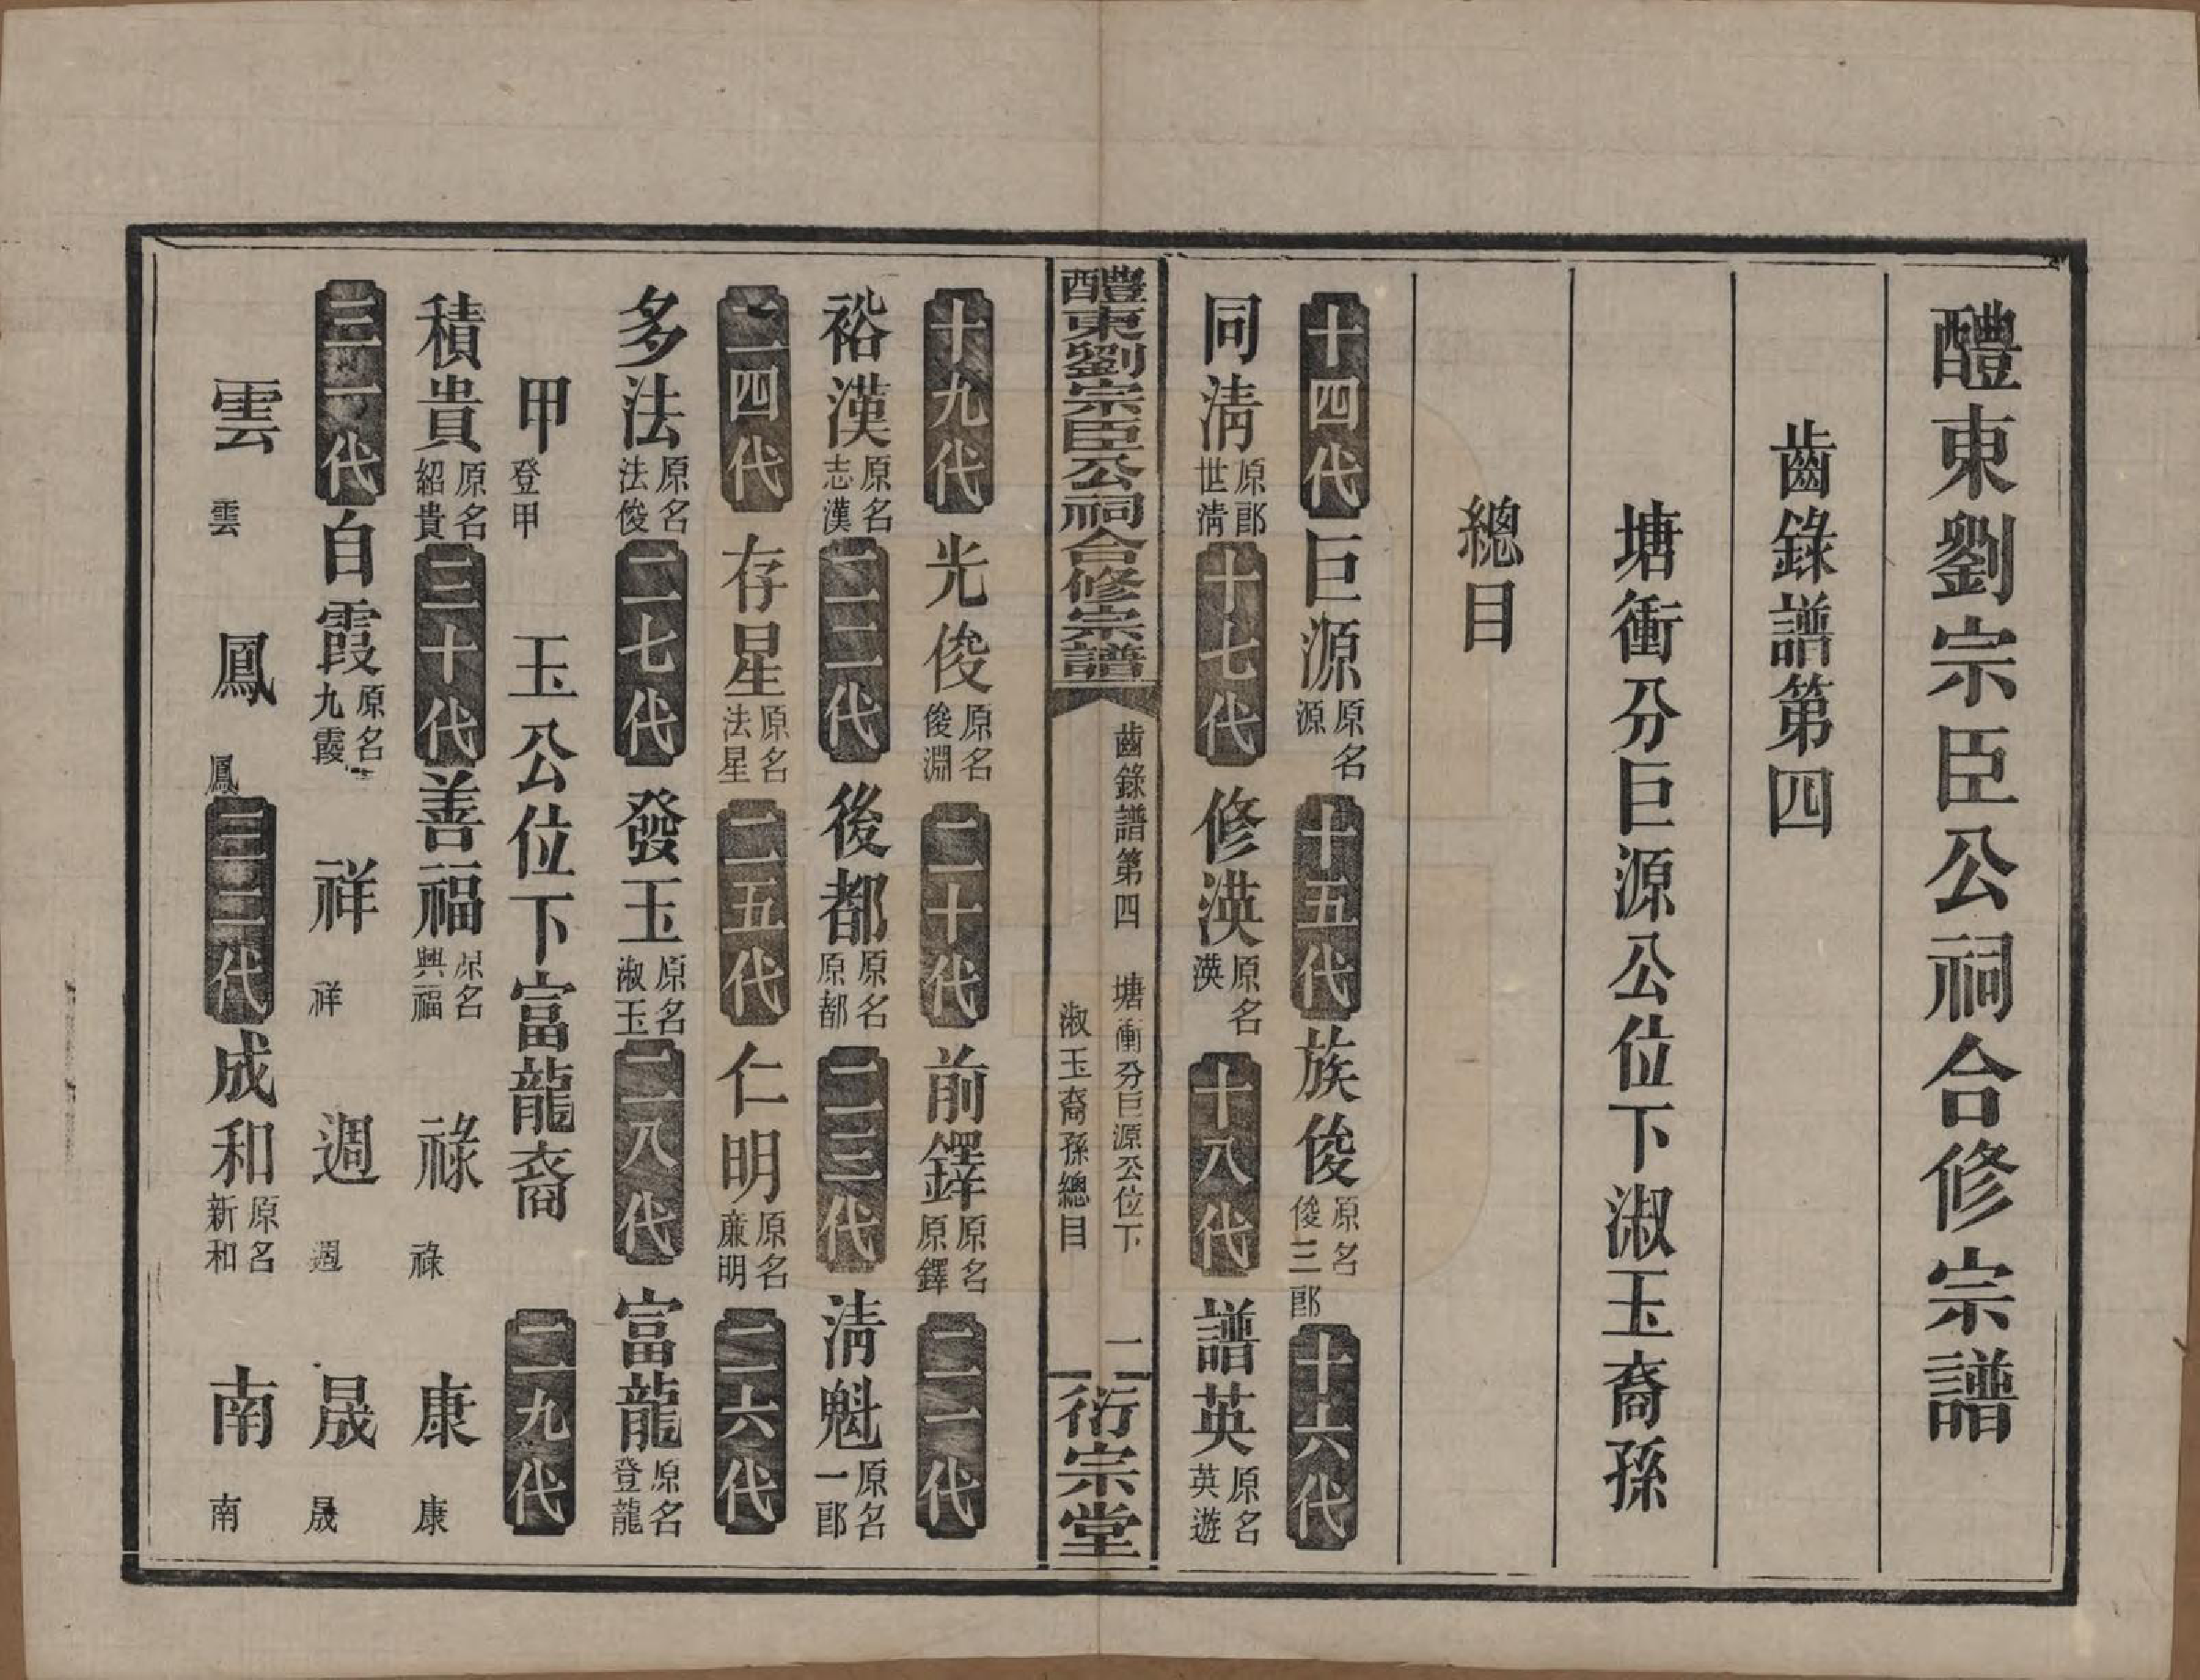 醴東劉宗臣公祠合修宗譜
齒錄譜第四
塘衝分巨源公位下淑玉裔孫
總目
十四代 巨源 原名源 十五代 族俊 原名俊三郎 十六代
同清 原郎世清 十七代 修渶 原名渶 十八代 譜英 原名英遊
醴東劉宗臣公祠合修宗譜 齒錄譜第四 塘衝分巨源公位下淑玉裔孫總目 二 衍宗堂
十九代 光俊 原名俊淵 二十代 前鐸 原名原鐸 二一代
裕漢 原名志漢 二二代 後都 原名原都 二三代 清魁 原名一郎
二四代 存星 原名法星 二五代 仁明 原名廉明 二六代
多法 原名法俊 二七代 發玉 原名淑玉 二八代 富龍 原名登龍
甲 登甲 玉公位下富龍裔 二九代
積貴 原名紹貴 三十代 善福 原名興福 祿 祿 康 康
三一代 自霞 原名九霞 祥 祥 週 週 晟 晟
雲 雲 鳳 鳳 三二代 成和 原名新和 南 南